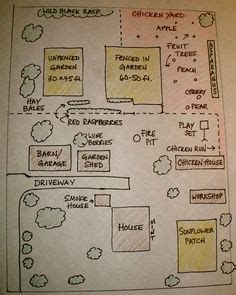 WILD BLACK RASP.
CHICKEN YARD
APPLE
FRUIT
TREES
PEACH
ASPARAGUS
CHERRY
PEAR
UNFENCED
GARDEN
30 x 45 ft.
FENCED IN
GARDEN
60-50 ft.
HAY
BALES
RED RASPBERRIES
WINE
BERRIES
FIRE
PIT
PLAY
SET
CHICKEN RUN
BARN/
GARAGE
GARDEN
SHED
CHICKEN HOUSE
DRIVEWAY
SMOKE
HOUSE
WORKSHOP
HOUSE
MINT
SUNFLOWER
PATCH